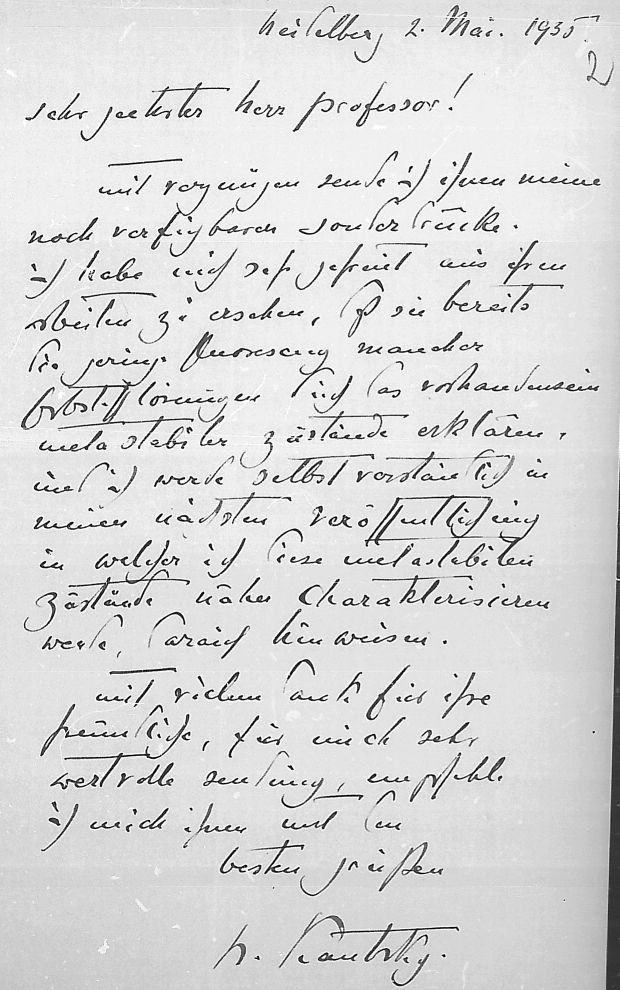 Heidelberg 2. Mai. 1935.
2
sehr geehrter herr professor!
mit vergnügen sende ich ihnen meine
noch verfügbaren sonderdrücke.
ich habe mich sehr gefreut aus ihren
arbeiten zu ersehen, daß sie bereits
die geringe fluoreszenz mancher
farbstofflösungen durch das vorhandensein
metastabiler zustände erklären,
und ich werde selbstverständlich in
meiner nächsten veröffentlichung
in welcher ich diese metastabilen
zustände näher charakterisieren
werde, darauf hinweisen.
mit vielem dank für ihre
freundliche, für mich sehr
wertvolle sendung, empfehle
ich mich ihnen mit den
besten grüßen
H. Kautsky.